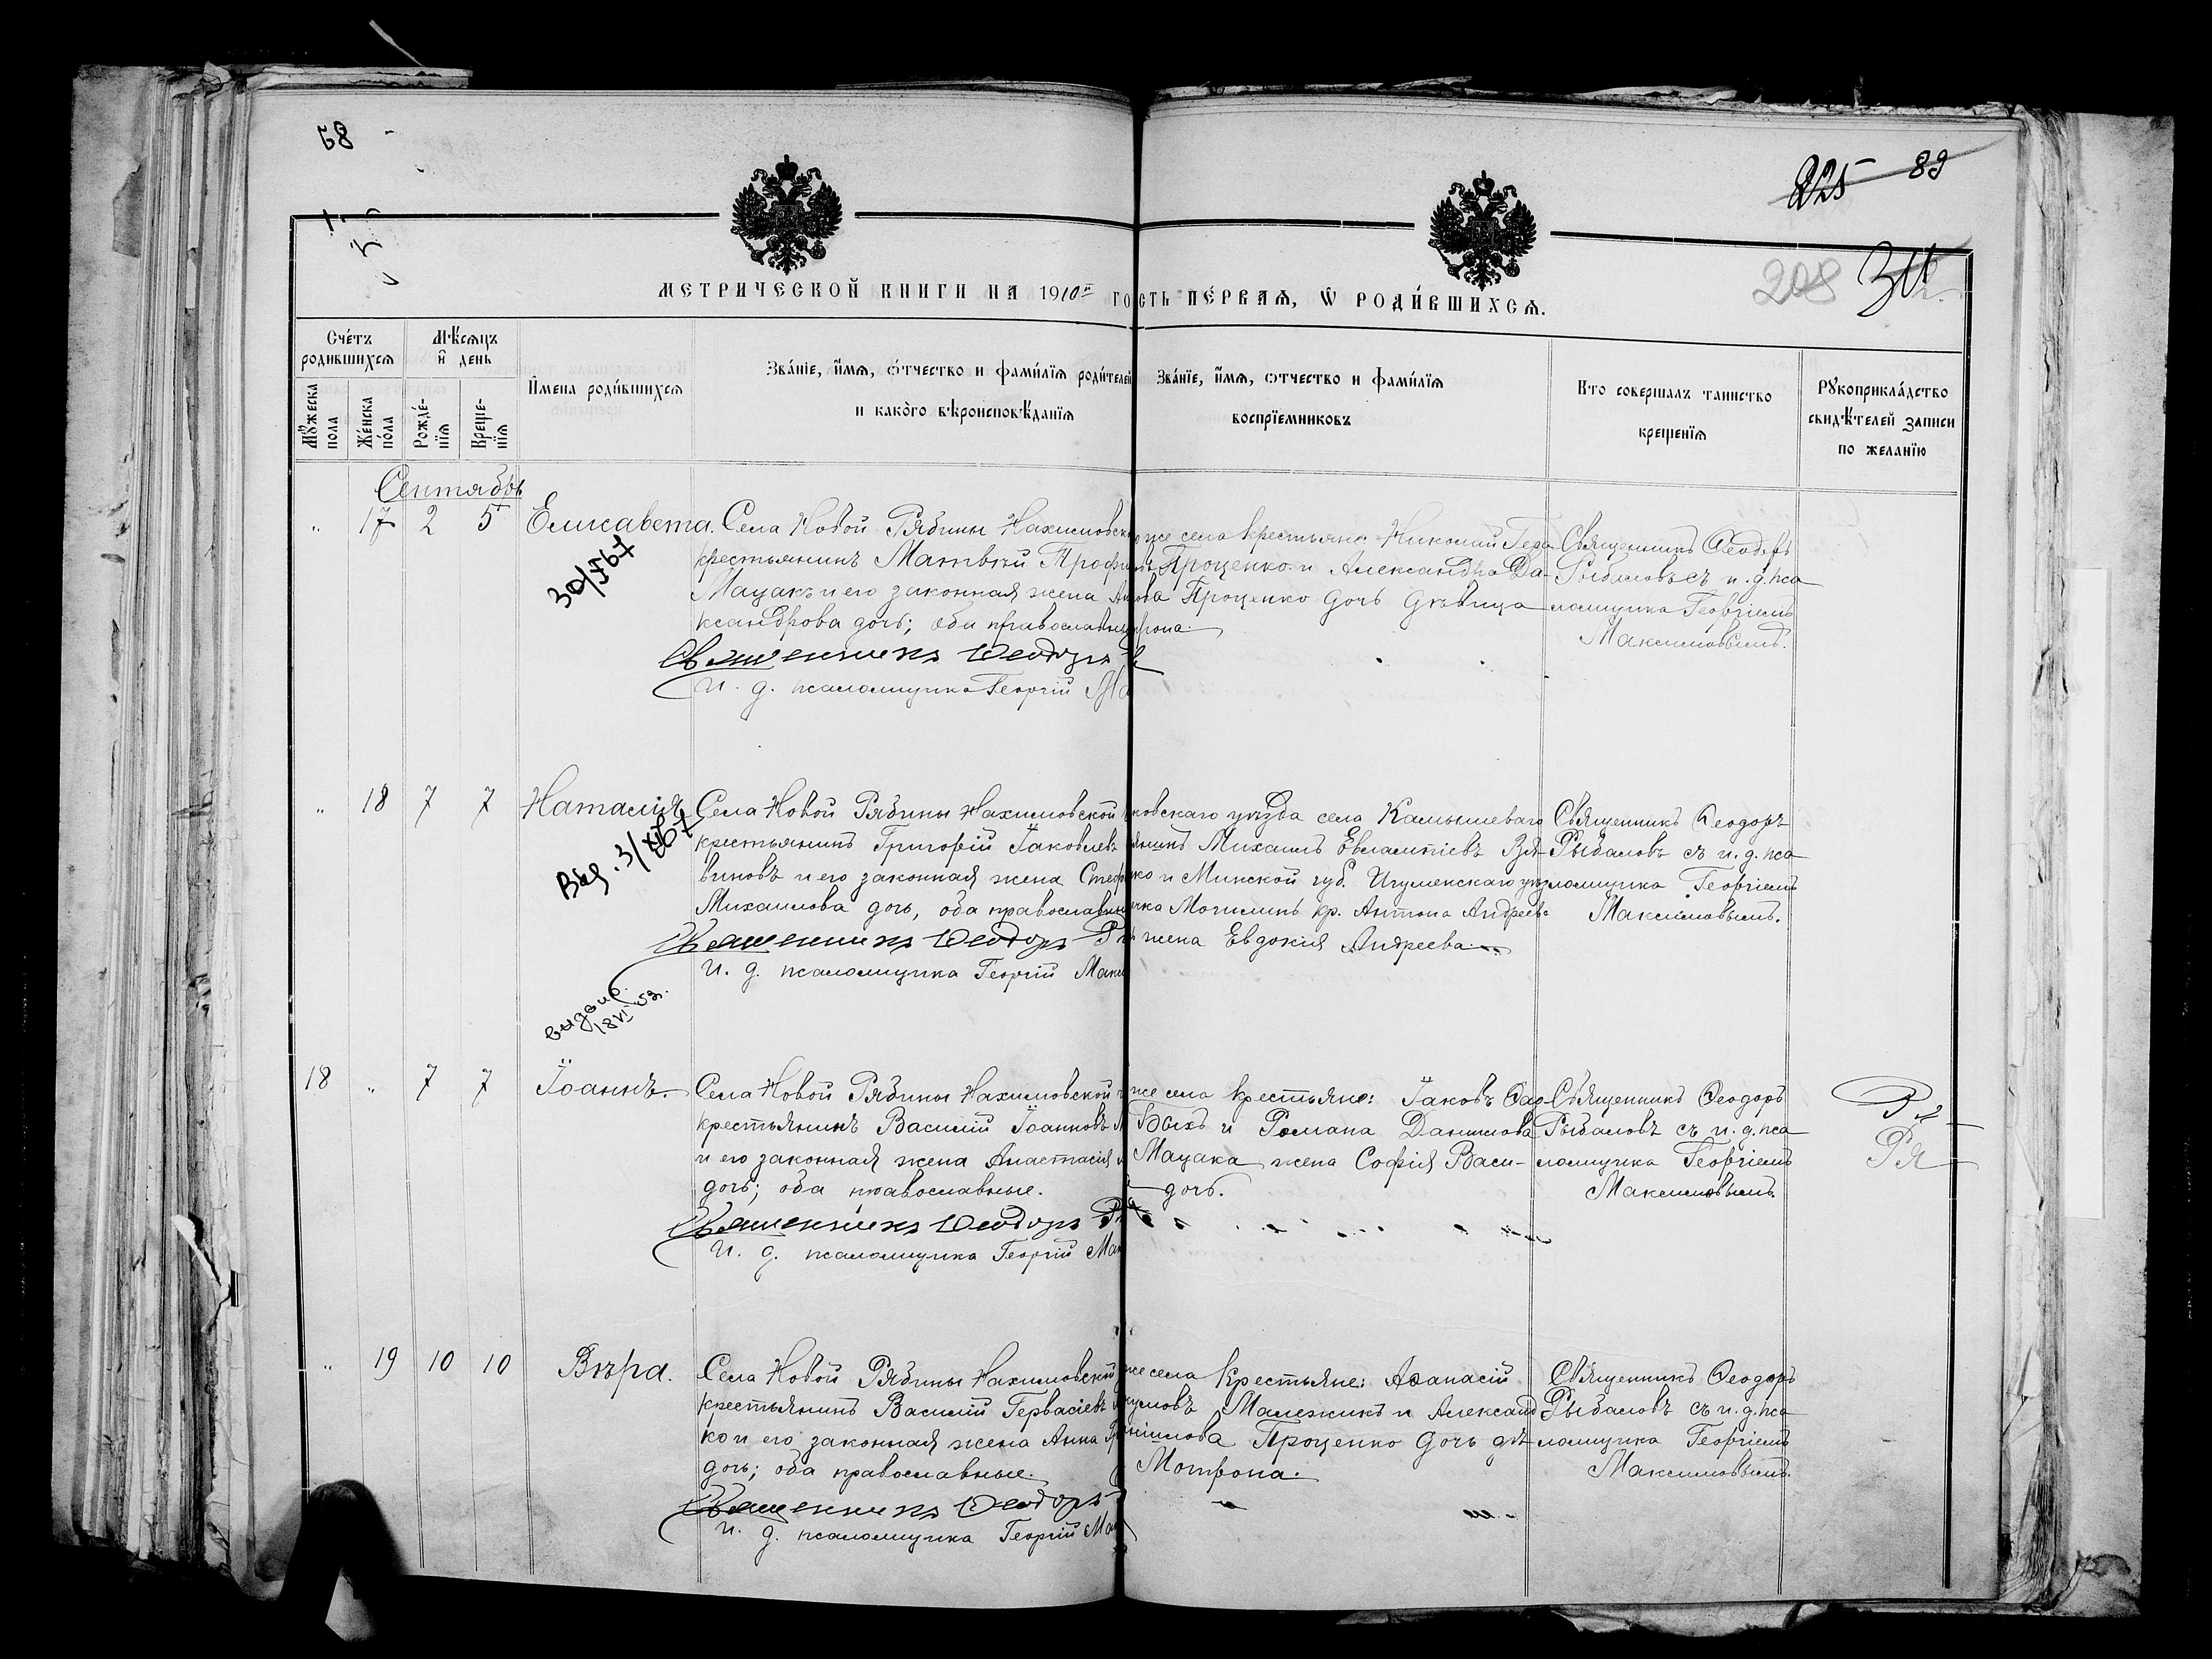 58
225 89
208
МЕТРИЧЕСКОЙ КНИГИ НА 1910 Г
ЧАСТЬ ПЕРВАЯ, Ѡ РОДИВШИХСЯ.
Счетъ родившихся
Мѣсяцъ и день
Мужеска пола
Женска пола
Рожденія
Крещенія
Имена родившихся
Званіе, имя, отчество и фамилія родителей
и какого вѣроисповѣданія
Званіе, имя, отчество и фамилія
воспріемниковъ
Кто совершалъ таинство
крещенія
Рукоприкладство
свидѣтелей записи
по желанію
Сентябрь
„ 17 2 5 Елисавета.
30/X 67
Села Новой Рябины Нахимовск
крестьянинъ Матвѣй Трофи
Мацакъ и его законная жена
ксандрова дочь; оба православн
Священникъ Ѳеодоръ
И. д. псаломщика Георгій Ма
же села крестьяне Николай Гера
Проценко и Александра Да
Проценко дочь дѣвица
Священникъ Ѳеодоръ
Рыбаловъ съ и. д. пса
ломщика Георгіемъ
Максимовымъ.
„ 18 7 7 Наталія
Выд. 3/X 67
Села Новой Рябины Нахимовской
крестьянинъ Григорій Іаковлевъ
виновъ и его законная жена Стеф
Михаилова дочь, оба православны
Священникъ Ѳеодоръ Р
И. д. псаломщика Георгій Макс
ковскаго уѣзда села Камышеваго
янинъ Михаилъ Евлампіевъ
ко и Минской губ. Игуменскаго уѣз
Могилинъ кр. Антона Андреева
жена Евдокія Андреева.
Священникъ Ѳеодоръ
Рыбаловъ съ и. д. пса
ломщика Георгіемъ
Максимовымъ.
выдано
18 VI 53.
18 „ 7 7 Іоаннъ.
Села Новой Рябины Нахимовской
крестьянинъ Василій Іоанновъ
и его законная жена Анастасія
дочь; оба православные.
Священникъ Ѳеодоръ Р
И. д. псаломщика Георгій Мак
же села крестьяне: Іаковъ
и Романа Данилова
Мацака жена Софія Васи-
дочь.
Священникъ Ѳеодоръ
Рыбаловъ съ и. д. пса
ломщика Георгіемъ
Максимовымъ.
„ 19 10 10 Вѣра.
Села Новой Рябины Нахимовской
крестьянинъ Василій Гервасіевъ
ко и его законная жена Анна
дочь; оба православные.
Священникъ Ѳеодоръ
И. д. псаломщика Георгій Ма
же села крестьяне: Аѳанасій
Малежикъ и Александ
Проценко дочь дѣ
Мотрона.
Священникъ Ѳеодоръ
Рыбаловъ съ и. д. пса
ломщика Георгіемъ
Максимовымъ.